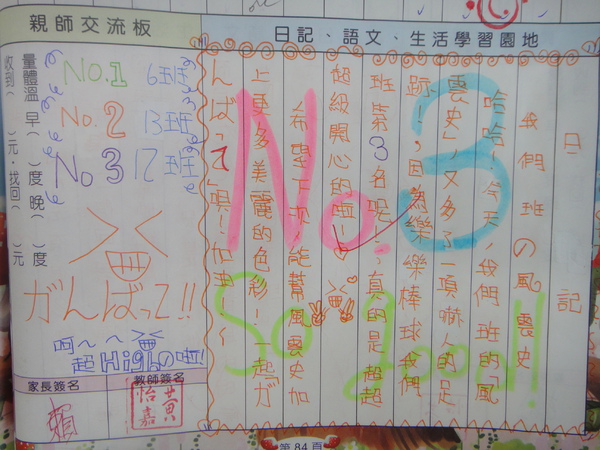 日記、語文、生活學習園地
日記
我們班の風雲史
哈哈！今天，我們班的風
雲史，又多了一項嚇人的足
跡！，因為樂樂棒球我們
班第3名呢！真的是超超
超級開心的啦！
希望下次，能幫風雲史加
上更多美麗的色彩！一起が
んばって唄！加油～～
No.3
So good!!
親師交流板
NO.1 6班
No.2 13班
No3 12班
量體溫 早( )度 晚( )度
收到( )元‧找回( )元
がんばって!!
啊～～
超Highの啦!
家長簽名
教師簽名
賴
黃怡嘉
第84頁